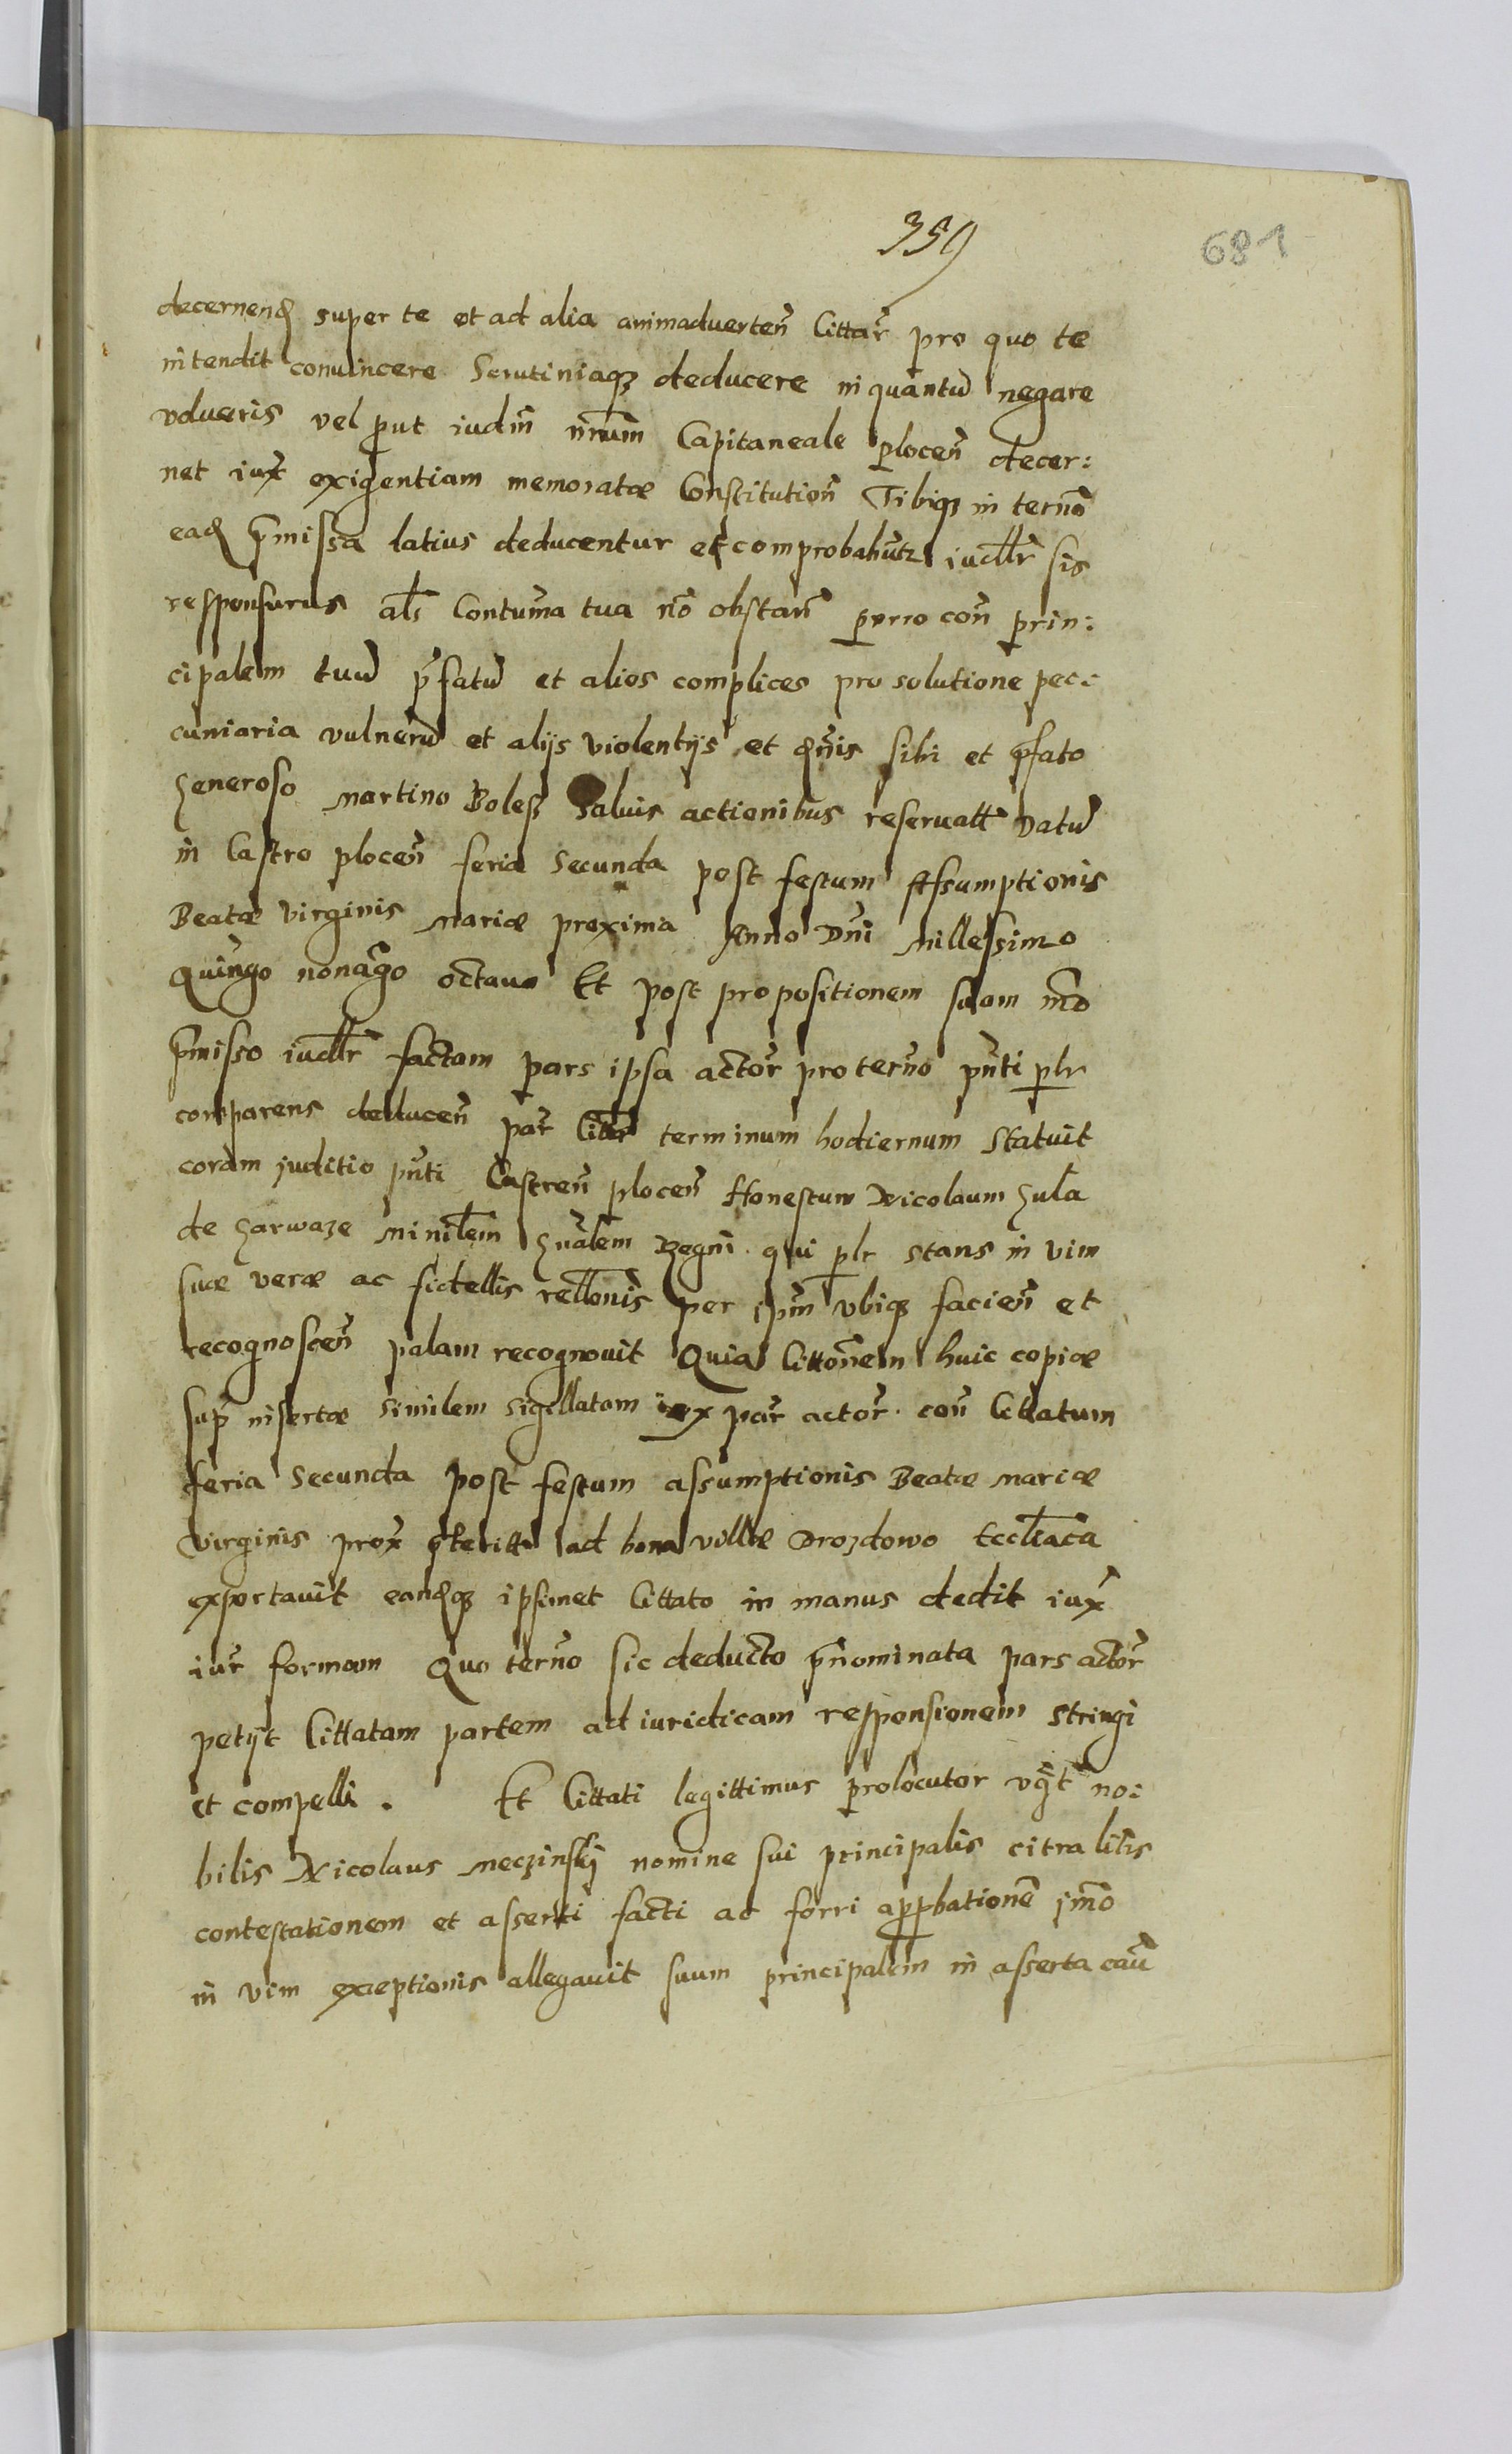 359
681
decernend super te et ad alia animaduerten Cittar pro quo te
intendit conuincere Scrutiniaqz deducere in quantu negare
volueris vel put iudm nrum Capitaneale plocen decer:
net iux exigentiam memoratæ Constitution Tibiqz in terno
ead pmissa latius deducentur et comprobabutr iudllr sis
responsurus als Contuma tua no obstan porro con prin:
cipalem tuu pfatu et alios complices pro solutione pec:
cuniaria vulneru et alijs violentijs et qnis sibi et pfato
Generoso Martino Boless Saluis actionibus reseruatt Datu
in Castro plocen feria Secunda post festum Assumptionis
Beatæ Virginis Mariæ proxima Anno Dni Millessimo
Quingo nonago octauo Et post propositionem suam mo
pmisso iudllr factam pars ipsa actor pro terno pnti plr
comparens deducen par Cittar terminum hodiernum Statuit
coram juditio pnti Castren plocen Honestum Nicolaum Gula
de Garwaze Ministlem Gnalem Regni qui plr stans in vim
suæ veræ ac fidellis rellonis per ipm vbiqz facien et
recognoscen palam recognouit Quia Cittonem huic copiæ
sup insertæ similem sigillatam ex par actor con Cittatum
feria Secunda post festum assumptionis Beatæ Mariæ
Virginis prox pteritti ad bona villæ Drozdowo Eccliaca
exportauit eandqz ipsimet Cittato in manus dedit iux
iur formam Quo terno sic deducto pnominata pars actor
petijt Cittatam partem ad iuridicam responsionem stringi
et compelli. Et Cittati legittimus prolocutor vgt no:
bilis Nicolaus Meczinskj nomine sui principalis citra litis
contestationem et asserti facti ac forri approbatione jmo
in vim exceptionis allegauit suum principalem in asserta cau